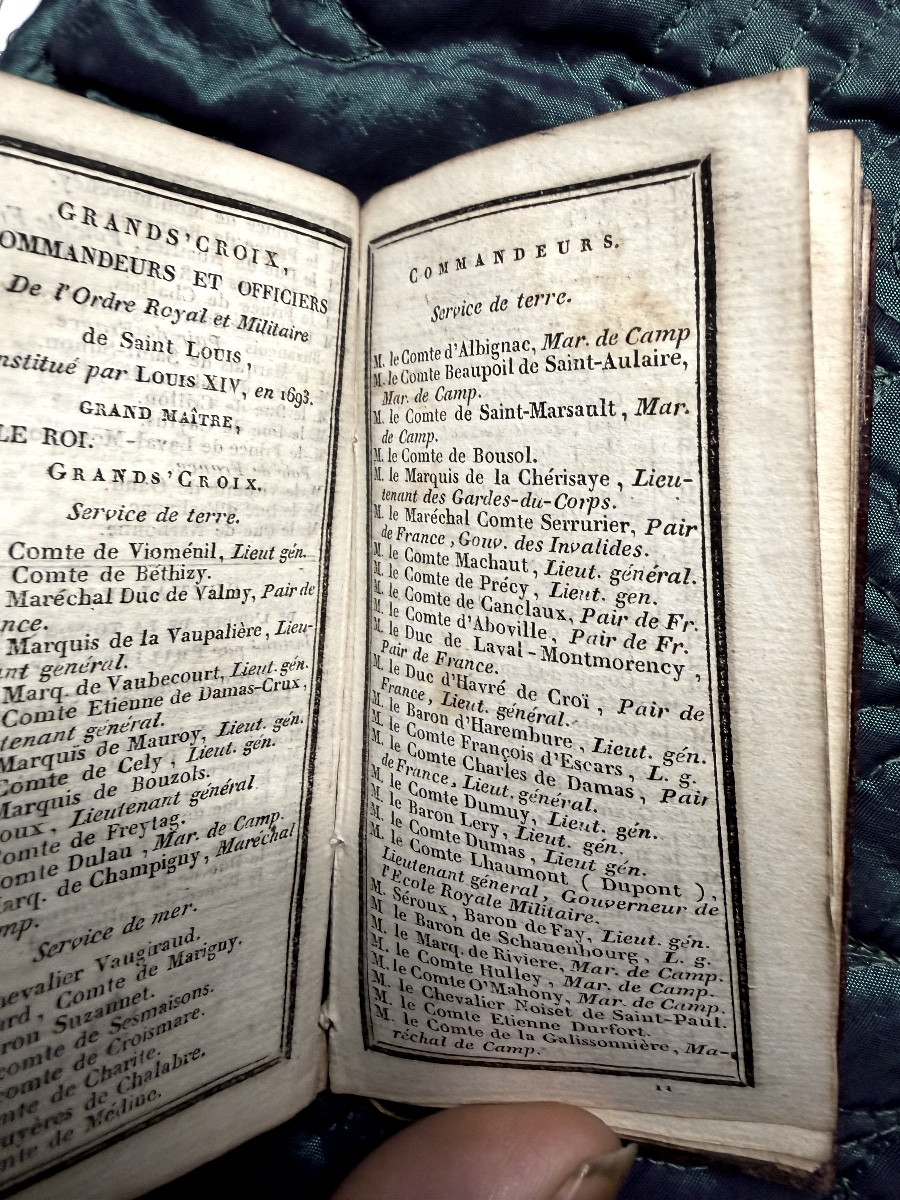 GRANDS'CROIX,
OMMANDEURS ET OFFICIERS
De l'Ordre Royal et Militaire
de Saint Louis,
nstitué par Louis XIV, en 1693.
GRAND MAÎTRE,
LE ROI.
GRANDS'CROIX.
Service de terre.
Comte de Vioménil, Lieut gén.
Comte de Béthizy.
Maréchal Duc de Valmy, Pair de
nce.
Marquis de la Vaupalière, Lieu-
ant général.
Marq. de Vaubecourt, Lieut. gén.
Comte Etienne de Damas-Crux,
tenant général.
Marquis de Mauroy, Lieut. gén.
Comte de Cely, Lieut. gén.
Marquis de Bouzols.
oux, Lieutenant général
omte de Freytag.
omte Dulau, Mar. de Camp.
arq. de Champigny, Maréchal
mp.
Service de mer.
hevalier Vaugiraud.
ard, Comte de Marigny.
ron Suzannet.
comte de Sesmaisons.
comte de Croismare.
mte de Charite.
uyères de Chalabre.
nte de Médine.
COMMANDEURS.
Service de terre.
M. le Comte d'Albignac, Mar. de Camp
M. le Comte Beaupoil de Saint-Aulaire,
Mar. de Camp.
M. le Comte de Saint-Marsault, Mar.
de Camp.
M. le Comte de Bousol.
M. le Marquis de la Chérisaye, Lieu-
tenant des Gardes-du-Corps.
M. le Maréchal Comte Serrurier, Pair
de France, Gouv. des Invalides.
M. le Comte Machaut, Lieut. général.
M. le Comte de Précy, Lieut. gen.
M. le Comte de Canclaux, Pair de Fr.
M. le Comte d'Aboville, Pair de Fr.
M. le Duc de Laval-Montmorency,
Pair de France.
M. le Duc d'Havré de Croï, Pair de
France, Lieut. général.
M. le Baron d'Harembure, Lieut. gén.
M. le Comte François d'Escars, L. g.
M. le Comte Charles de Damas, Pair
de France, Lieut. général.
M. le Comte Dumuy, Lieut. gén.
M. le Baron Lery, Lieut. gén.
M. le Comte Dumas, Lieut gén.
M. le Comte Lhaumont (Dupont),
Lieutenant général, Gouverneur de
l'Ecole Royale Militaire.
M. Séroux, Baron de Fay, Lieut. gén.
M. le Baron de Schauenbourg, L. g.
M. le Marq. de Riviere, Mar. de Camp.
M. le Comte Hulley, Mar. de Camp.
M. le Comte O'Mahony, Mar. de Camp.
M. le Chevalier Noiset de Saint-Paul.
M. le Comte Etienne Durfort.
M. le Comte de la Galissonnière, Ma-
réchal de Camp.
11